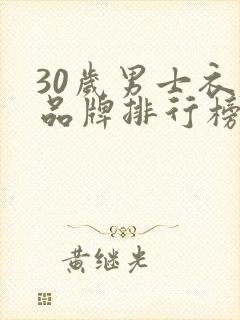 30歲男士衣
品牌排行榜
黄继光